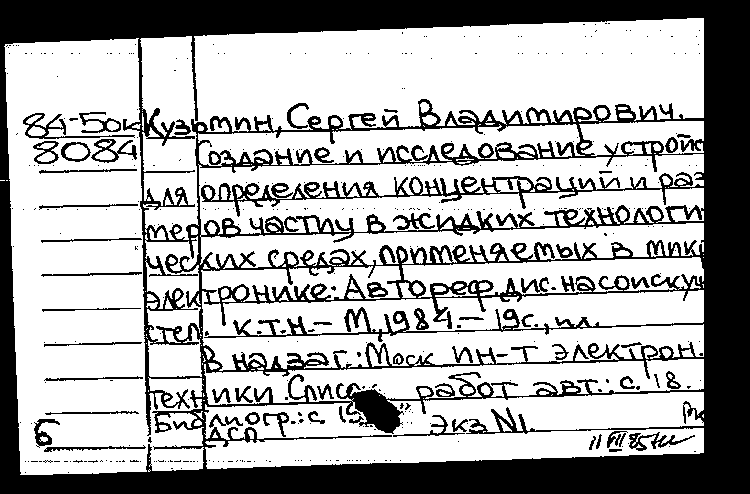 84-5ок Кузьмин, Сергей Владимирович.
8084 Создание и исследование устройс
для определения концентраций и раз
меров частиц в жидких технологи
ческих средах, применяемых в микр
электронике: Автореф. дис. на соиск уч
степ. к.т.н. – М., 1984. – 19с., ил.
В надзаг.: Моск ин-т электрон.
техники. Списо работ авт.: с. 18.
Библиогр.: с. 19 Экз №1.
б ДСП
11 VII 85